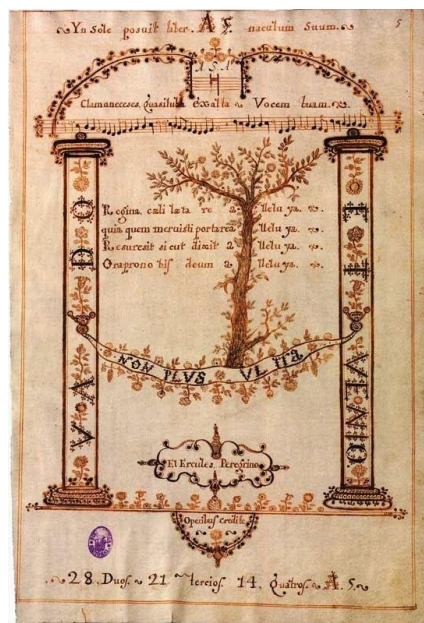 Yn sole posuit liber. A S. naculum suum.
5
A S A
Clamaneceses, Quasituba exalta Vocem tuam.
Regina cæli læta re a lleluya.
quia quem meruisti portare a lleluya.
Resurexit si cut dixit a lleluya.
Ora pro no bis deum a lleluya.
NON PLVS VLtta
El Ercules Peregrino
Operibus credite
28. Duos. 21 tercios. 14. Quatros. A. S.